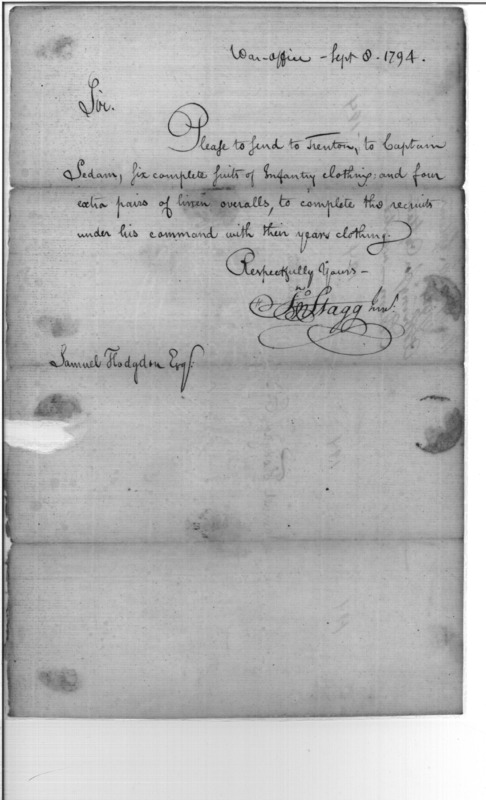 War-office - Sept 8. 1794.
Sir.
Please to send to Trenton, to Captain
Sedam, six complete suits of Infantry clothing: and four
extra pairs of linen overalls, to complete the recruits
under his command with their years clothing.
Respectfully Yours -
Jno Stagg Junr.
Samuel Hodgdon Esqr.